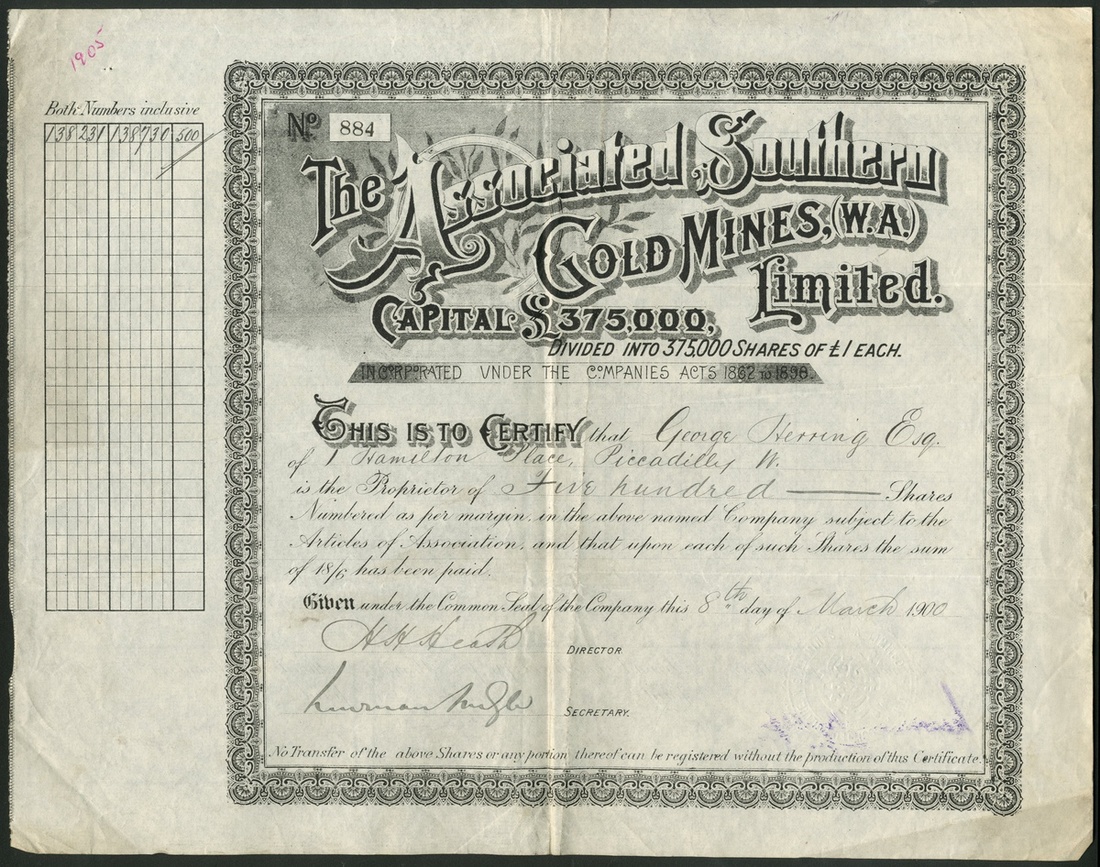 1905
Both Numbers inclusive
138231 138730 500
No. 884
The Associated Southern
Gold Mines, (W.A.)
Limited.
Capital £375,000,
Divided into 375,000 Shares of £1 each.
Incorporated under the Companies Acts 1862 to 1898.
This is to Certify that George Herring Esq.
of 1 Hamilton Place, Piccadilly W.
is the Proprietor of Five hundred Shares
Numbered as per margin, in the above named Company subject to the
Articles of Association, and that upon each of such Shares the sum
of 18/6 has been paid.
Given under the Common Seal of the Company this 8th day of March 1900
H H Heath
Director
Secretary.
No Transfer of the above Shares or any portion thereof can be registered without the production of this Certificate.